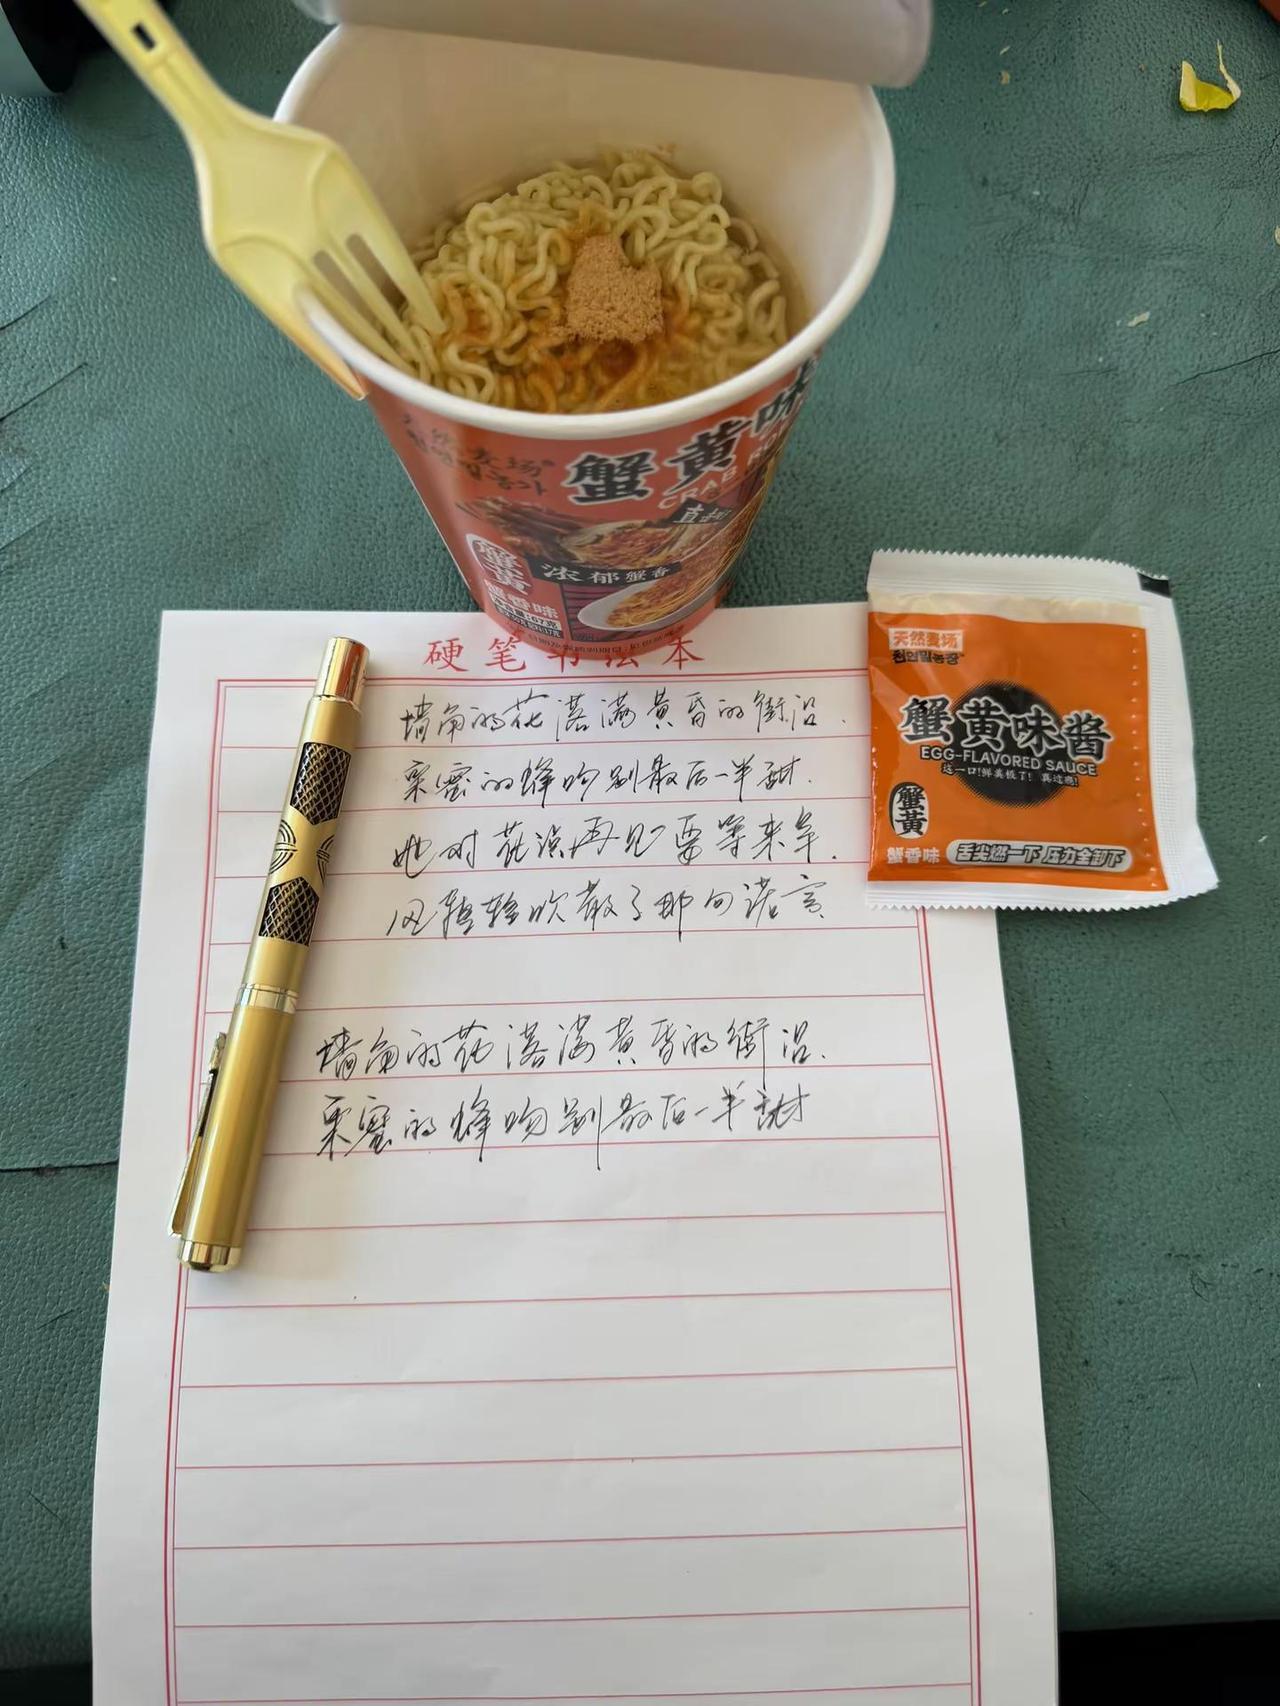 蟹黄味
CRAB RO
天然麦场
直
浓郁蟹香
蟹黄
蟹香味
硬笔书法本
墙角的花落满黄昏的街沿.
采蜜的蜂吻别最后一半甜.
她对花说再见要等来年.
风轻轻吹散了那句诺言
墙角的花落满黄昏的街沿.
采蜜的蜂吻别最后一半甜
天然麦场
천연밀농장
蟹黄味酱
EGG-FLAVORED SAUCE
这一口!鲜美极了!真过瘾!
蟹黄
蟹香味
舌尖燃一下 压力全卸下